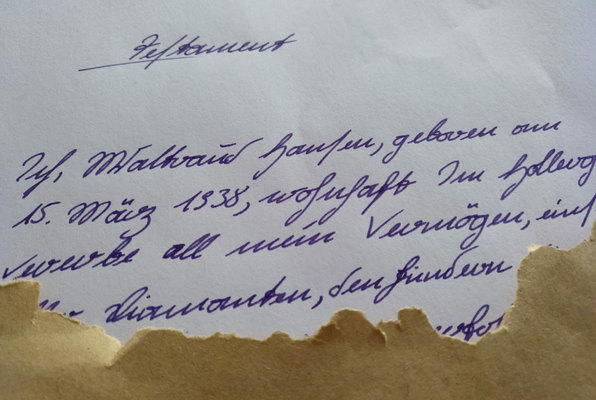 Testament
Ich, Waltraud Hansen, geboren am
15. März 1938, wohnhaft Im
vererbe all mein Vermögen,
Diamanten, den Findern